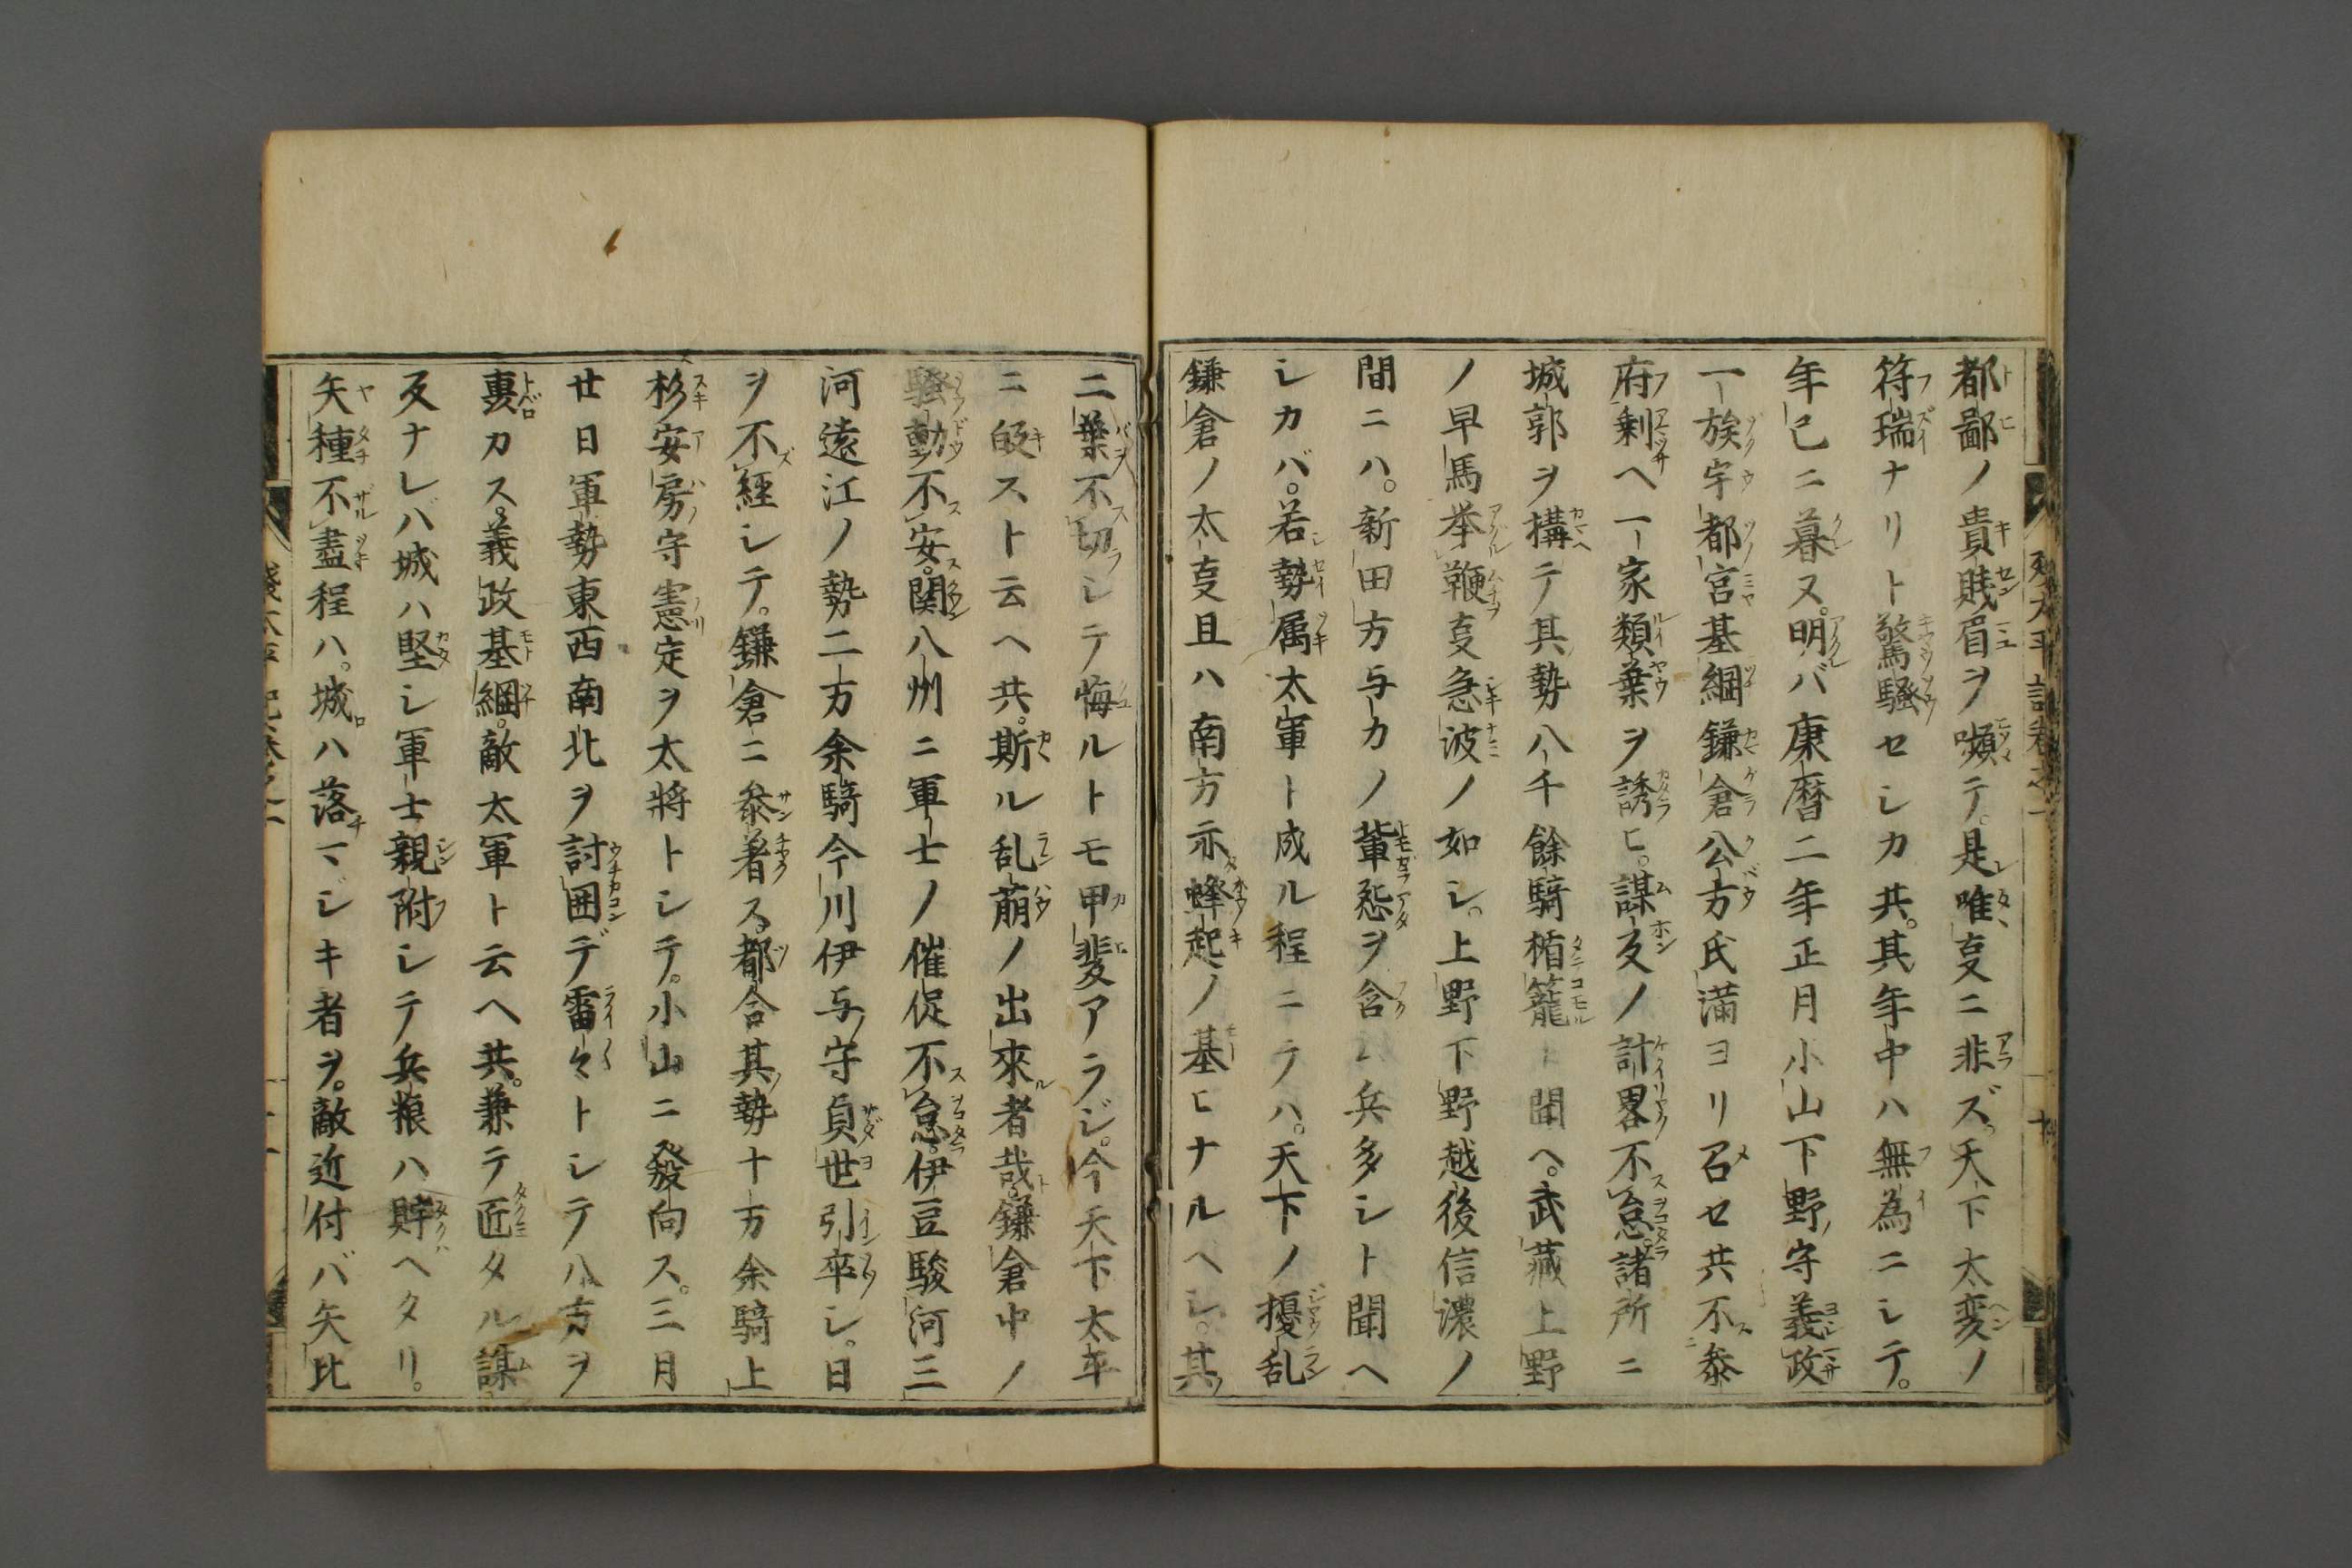 都鄙ノ貴賎眉ヲ嚬テ。是唯𫝕ニ非ズ。天下太変ノ
符瑞ナリト驚騒セシカ共。其年中ハ無為ニシテ。
年已ニ暮ヌ。明バ康暦二年正月小山下野守義政
一族宇都宮基綱鎌倉公方氏満ヨリ召セ共不叅
府剰ヘ一家類葉ヲ誘ヒ。謀反ノ計畧不怠諸所ニ
城郭ヲ構テ其勢八千餘騎楯籠ト聞ヘ。武蔵上野
ノ早馬挙鞭𫝕急波ノ如シ。上野下野越後信濃ノ
間ニハ。新田方与カノ輩怨ヲ含ム兵多シト聞ヘ
シカバ。若勢属太軍ト成ル程ニテハ。天下ノ擾乱
鎌倉ノ太𫝕且ハ南方示蜂起ノ基ヒナルヘシ。其
二葉不切シテ悔ルトモ甲斐アラジ。今天下太平
ニ皈スト云ヘ共。斯ル乱萠ノ出來者哉鎌倉中ノ
騒動不安。関八州ニ軍士ノ催促不怠。伊豆駿河三
河遠江ノ勢二万余騎今川伊与守貞世引卒シ。日
ヲ不經シテ。鎌倉ニ叅着ス。都合其勢十万余騎上
杉安房守憲定ヲ太将トシテ。小山ニ發向ス。三月
廿日軍勢東西南北ヲ討囲デ雷々トシテ八方ヲ
裏カス。義政基綱。敵太軍ト云ヘ共。兼テ匠タル謀
反ナレバ城ハ堅シ軍士親附シテ兵粮ハ貯ヘタリ。
矢種不盡程ハ。城ハ落マシキ者ヲ。敵近付バ矢比